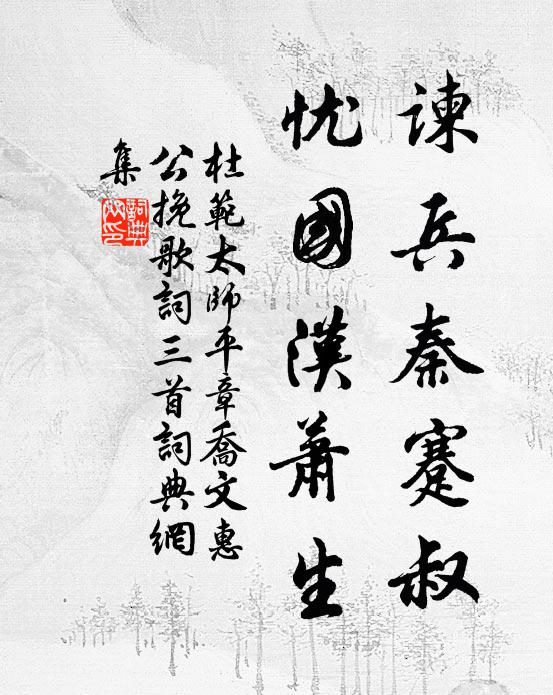 諫兵秦蹇叔
忧國漢蕭生
杜範太師平章喬文惠
公挽歌詞三首詞典網
集
詞典
网印